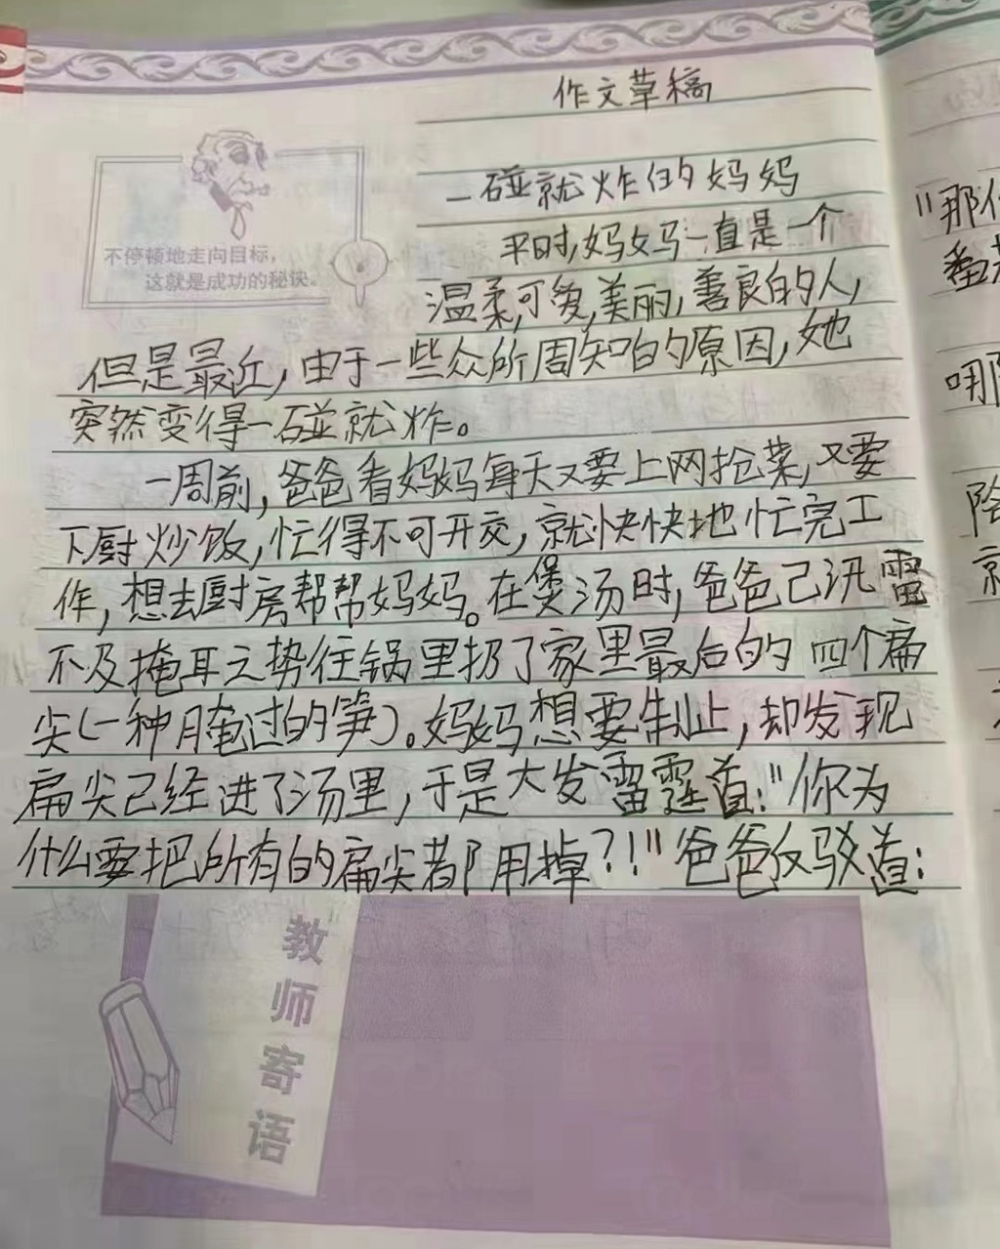 作文草稿
一碰就炸的妈妈
不停顿地走向目标，
这就是成功的秘诀。
平时,妈妈一直是一个
温柔,可爱,美丽,善良的人,
但是最近,由于一些众所周知的原因,她
突然变得一碰就炸。
一周前,爸爸看妈妈每天又要上网抢菜,又要
下厨炒饭,忙得不可开交,就快快地忙完工
作,想去厨房帮帮妈妈。在煲汤时,爸爸已汛雷
不及掩耳之势往锅里扔了家里最后的四个扁
尖(一种腌过的笋)。妈妈想要制止,却发现
扁尖已经进了汤里,于是大发雷霆道:"你为
什么要把所有的扁尖都用掉?!"爸爸反驳道:
教师寄语
"那
番
哪